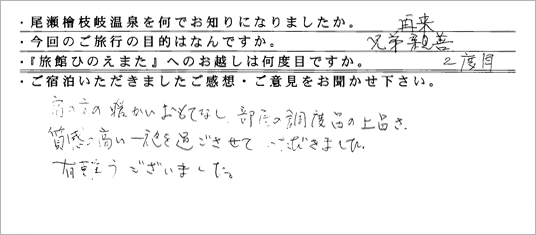 ・尾瀬檜枝岐温泉を何でお知りになりましたか。 再来
・今回のご旅行の目的はなんですか。 兄弟親善
・『旅館ひのえまた』へのお越しは何度目ですか。 2度目
・ご宿泊いただきましたご感想・ご意見をお聞かせ下さい。
宿の方の暖かいおもてなし、部屋の調度品の上品さ、
質感の高い一夜を過ごさせていただきました。
有難うございました。